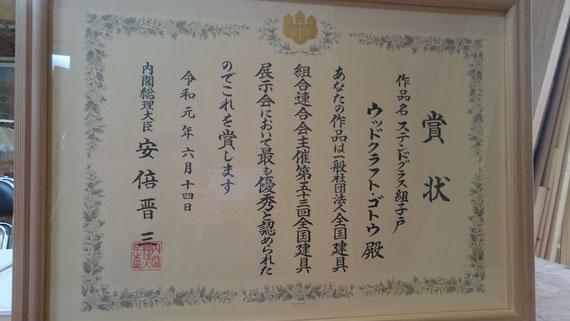 賞状
作品名 ステンドグラス組子戸
ウッドクラフト・ゴトウ殿
あなたの作品は一般社団法人全国建具
組合連合会主催第五十三回全国建具
展示会において最も優秀と認められた
のでこれを賞します
令和元年六月十四日
内閣総理大臣 安倍晋三